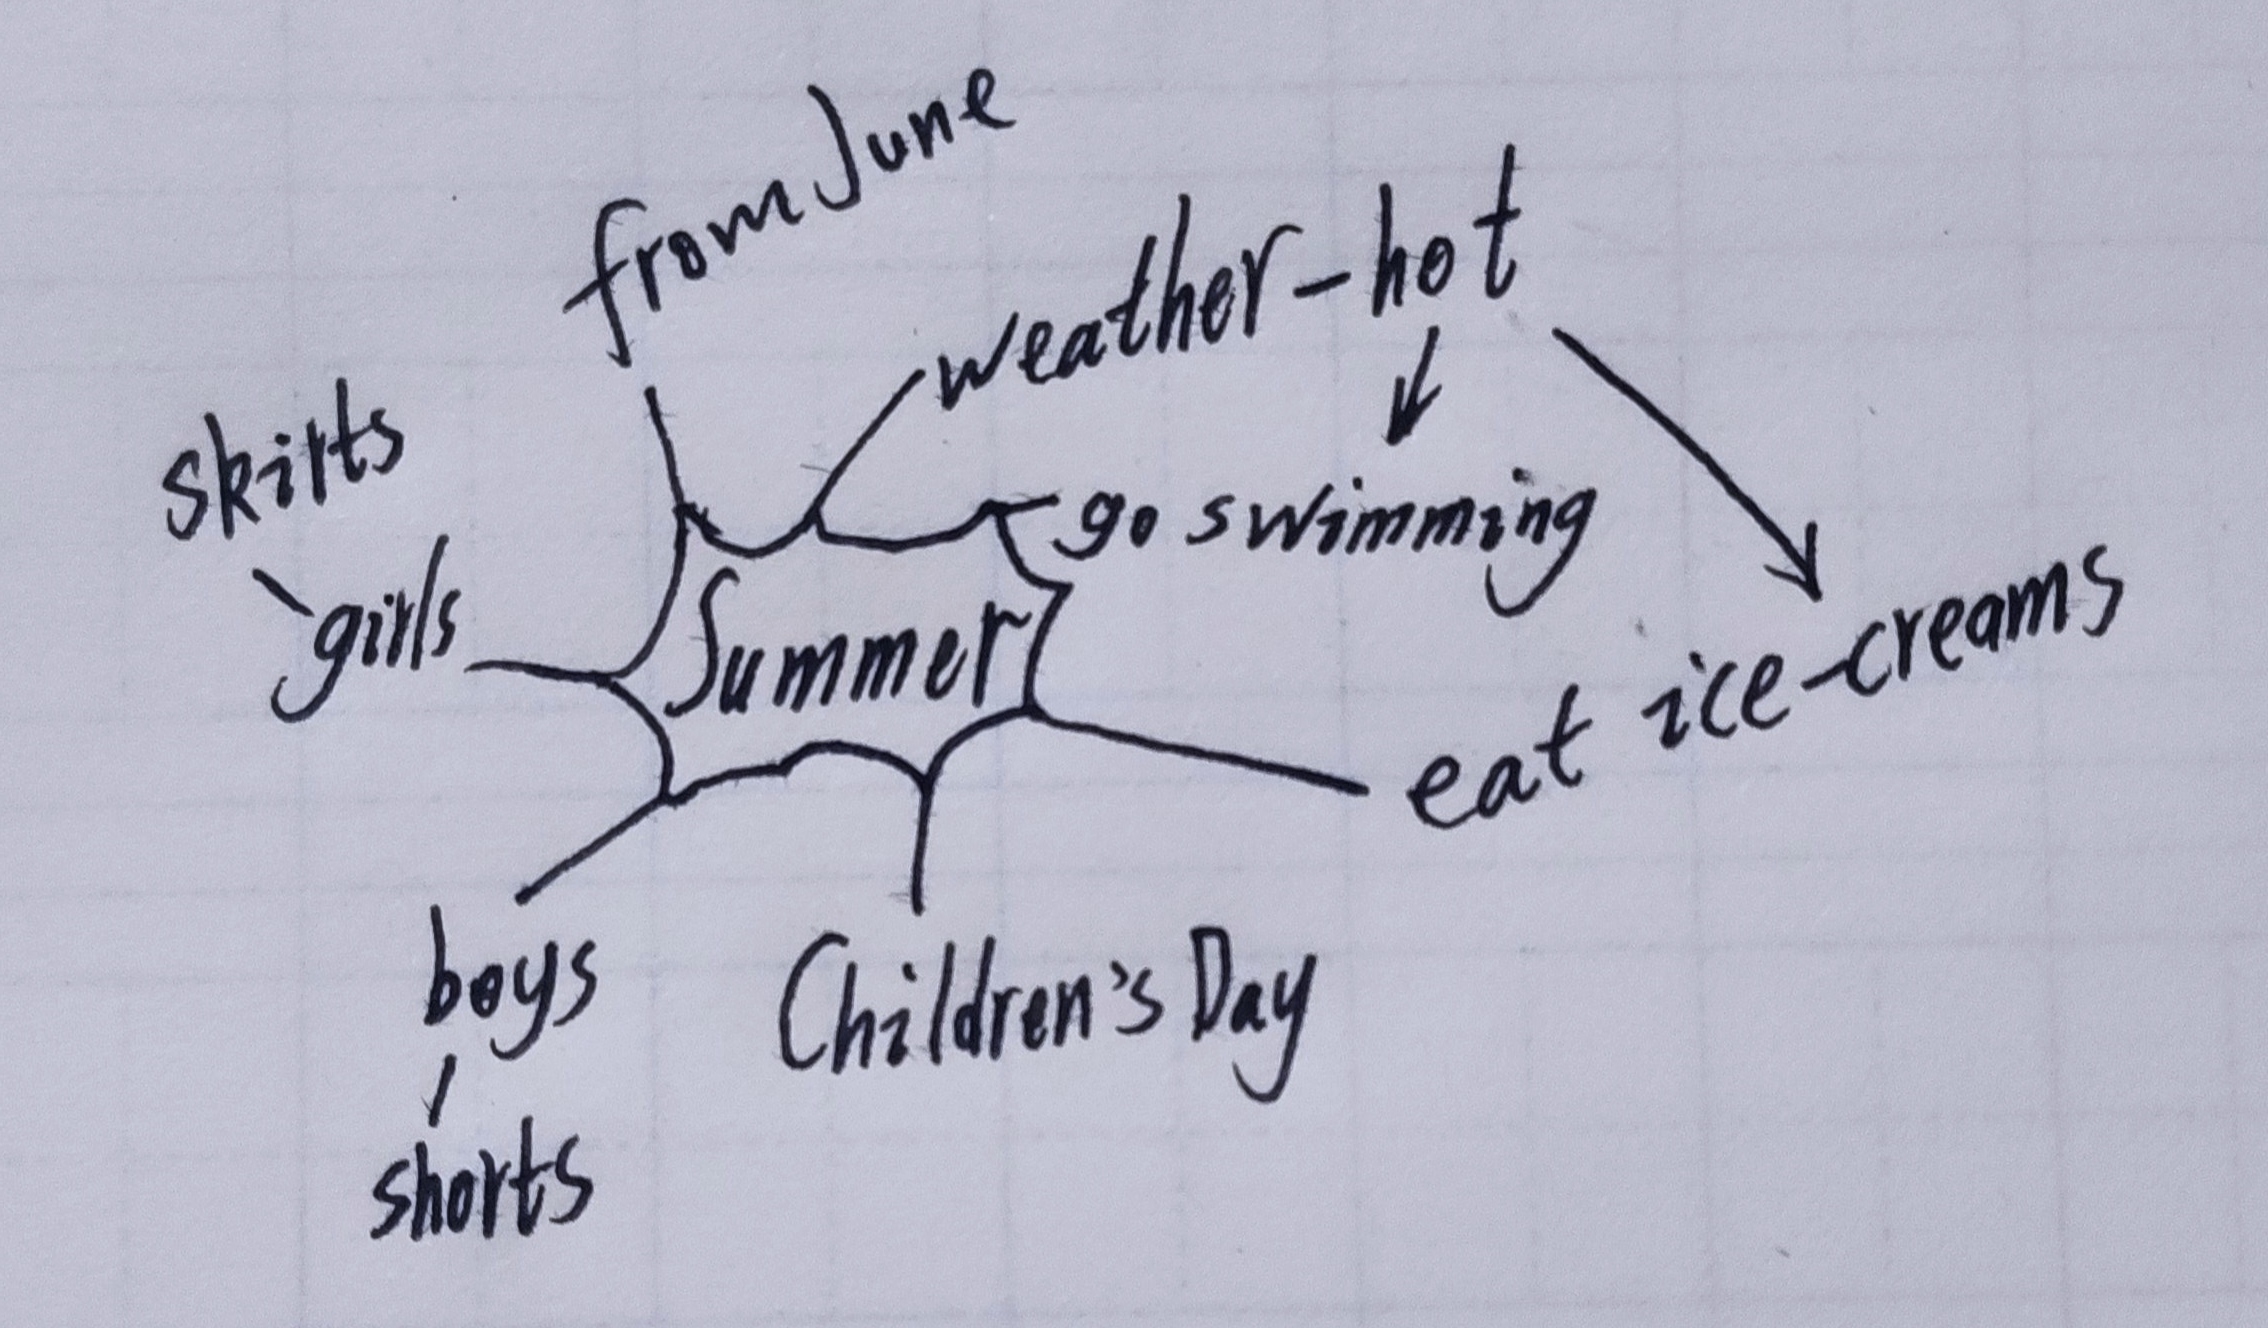 from June
weather-hot
skirts
go swimming
girls
Summer
eat ice-creams
boys
Children's Day
shorts